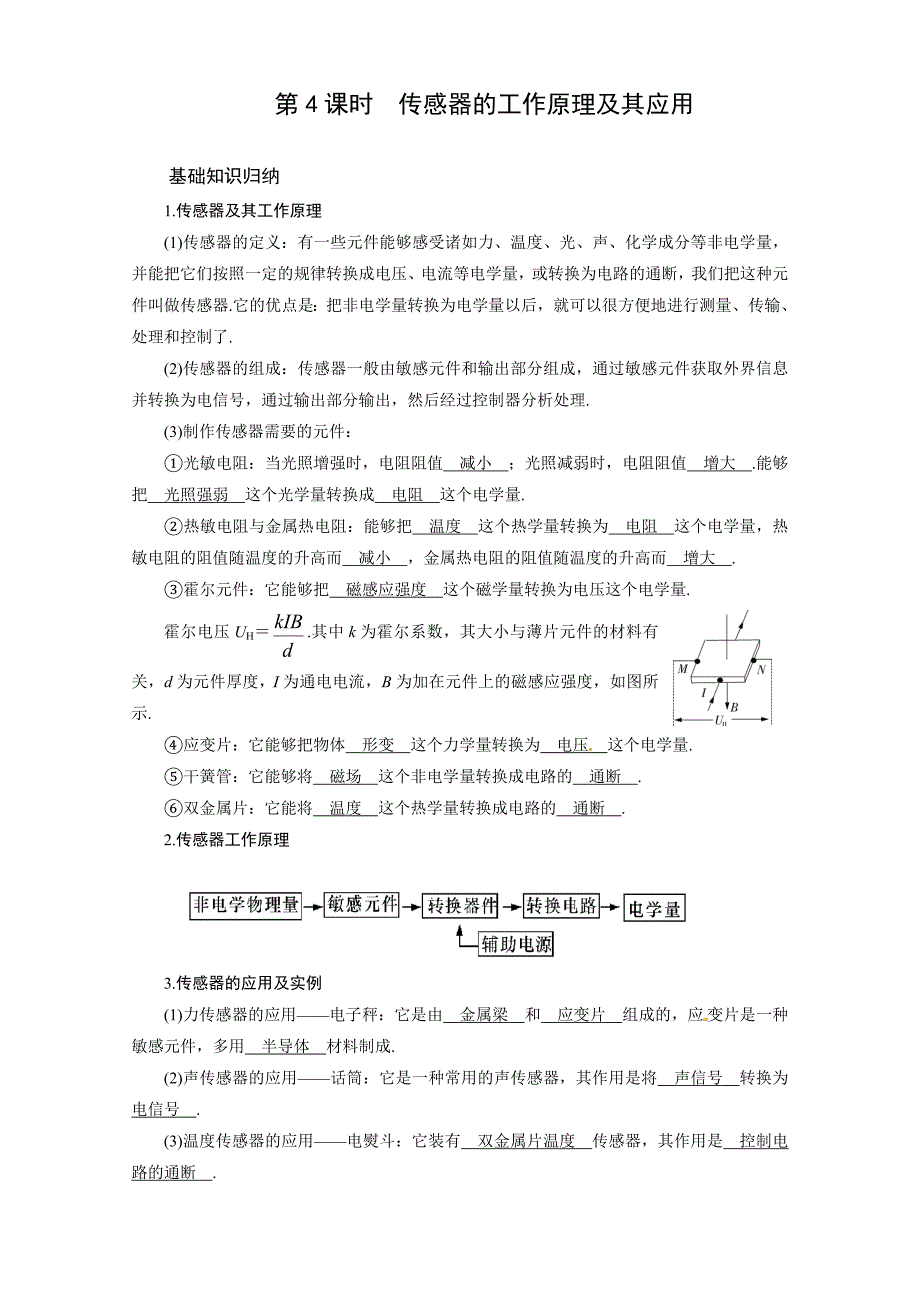 第4课时　传感器的工作原理及其应用
基础知识归纳
1.传感器及其工作原理
(1)传感器的定义：有一些元件能够感受诸如力、温度、光、声、化学成分等非电学量，
并能把它们按照一定的规律转换成电压、电流等电学量，或转换为电路的通断，我们把这种元
件叫做传感器.它的优点是：把非电学量转换为电学量以后，就可以很方便地进行测量、传输、
处理和控制了.
(2)传感器的组成：传感器一般由敏感元件和输出部分组成，通过敏感元件获取外界信息
并转换为电信号，通过输出部分输出，然后经过控制器分析处理.
(3)制作传感器需要的元件：
①光敏电阻：当光照增强时，电阻阻值　减小　；光照减弱时，电阻阻值　增大　.能够
把　光照强弱　这个光学量转换成　电阻　这个电学量.
②热敏电阻与金属热电阻：能够把　温度　这个热学量转换为　电阻　这个电学量，热
敏电阻的阻值随温度的升高而　减小　，金属热电阻的阻值随温度的升高而　增大　.
③霍尔元件：它能够把　磁感应强度　这个磁学量转换为电压这个电学量.
霍尔电压 UH＝kIB/d.其中 k 为霍尔系数，其大小与薄片元件的材料有
关，d 为元件厚度，I 为通电电流，B 为加在元件上的磁感应强度，如图所
示.
M
N
I
B
UH
④应变片：它能够把物体　形变　这个力学量转换为　电压　这个电学量.
⑤干簧管：它能够将　磁场　这个非电学量转换成电路的　通断　.
⑥双金属片：它能将　温度　这个热学量转换成电路的　通断　.
2.传感器工作原理
非电学物理量→敏感元件→转换器件→转换电路→电学量
辅助电源
3.传感器的应用及实例
(1)力传感器的应用——电子秤：它是由　金属梁　和　应变片　组成的，应变片是一种
敏感元件，多用　半导体　材料制成.
(2)声传感器的应用——话筒：它是一种常用的声传感器，其作用是将　声信号　转换为
电信号　.
(3)温度传感器的应用——电熨斗：它装有　双金属片温度　传感器，其作用是　控制电
路的通断　.